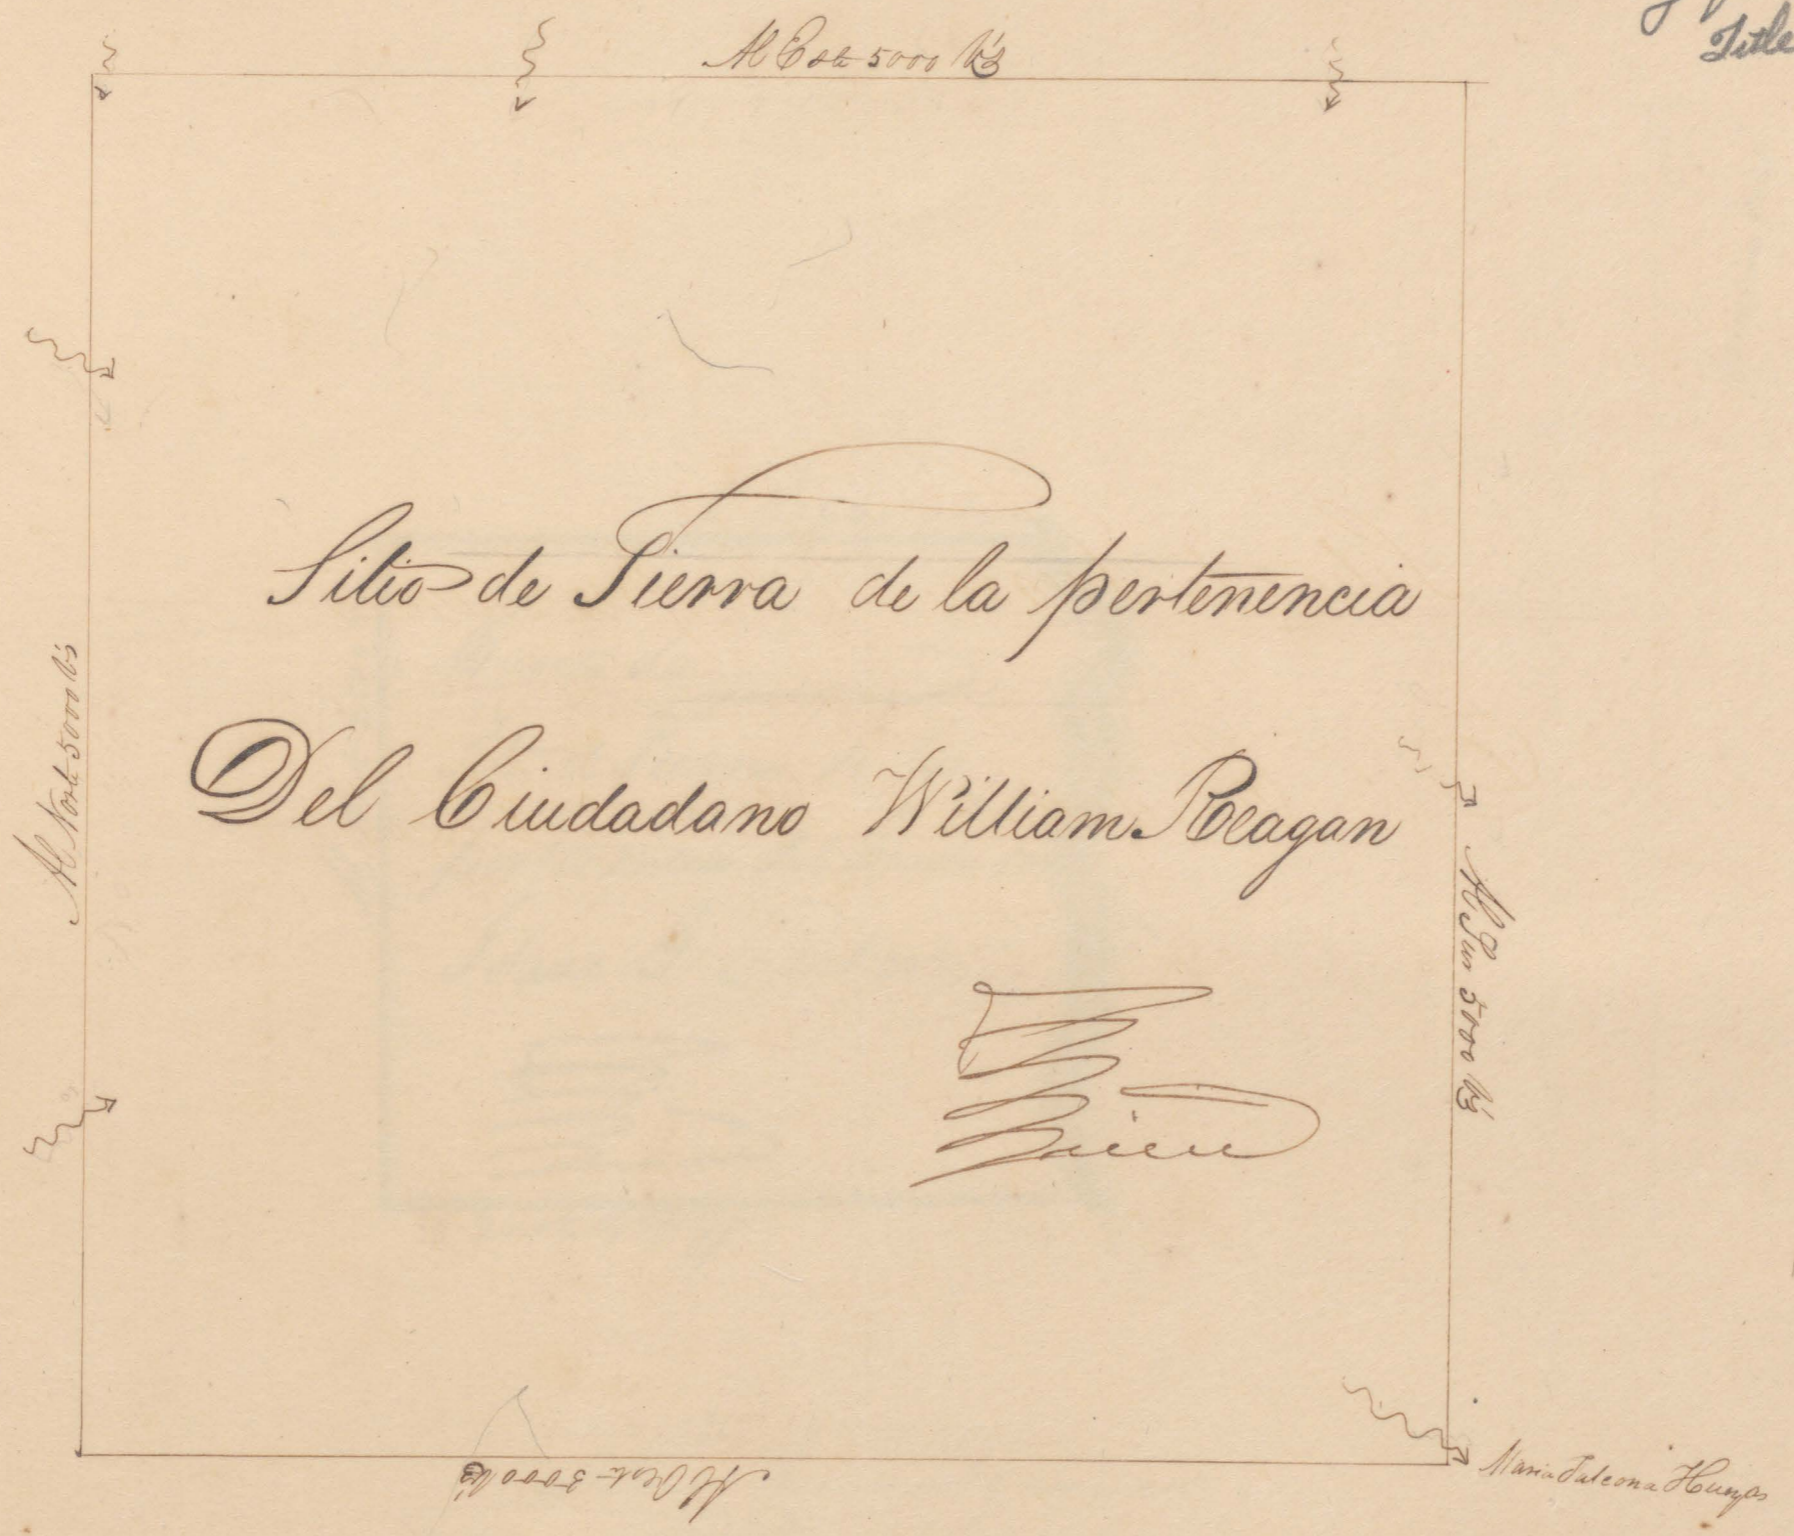 Title
Al Este 5000 vs
Al Norte 5000 vs
Sitio de Tierra de la pertenencia
Del Ciudadano William Reagan
Al Sur 5000 vs
Al Oeste 5000 vs
Maria